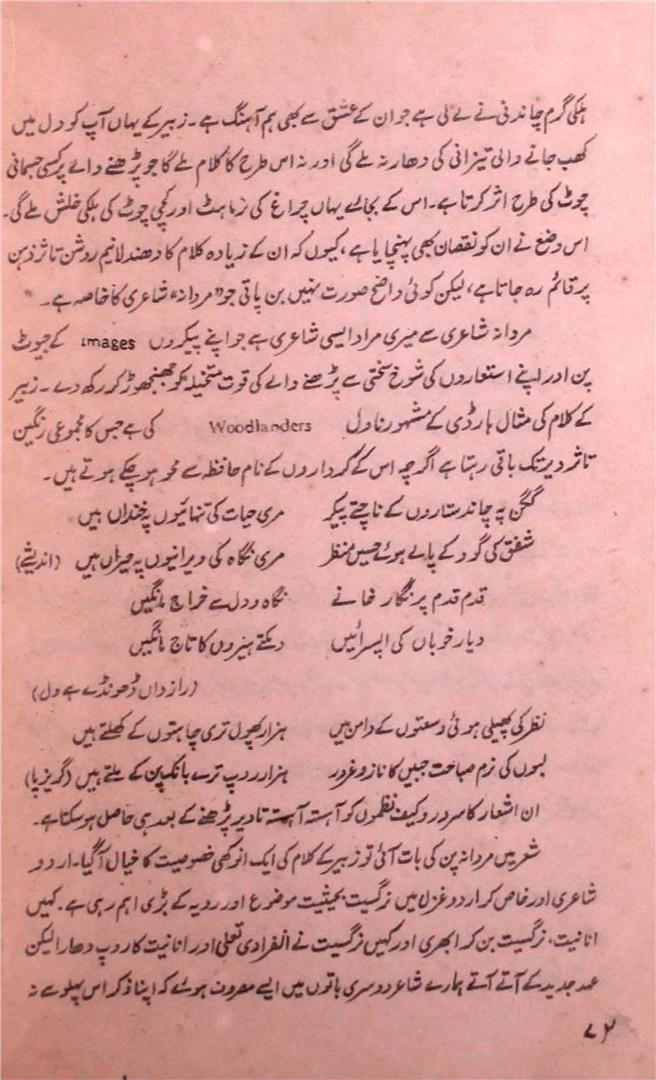 ہلکی گرم چاندنی نے لے لی ہے جو ان کے عشق سے بھی ہم آہنگ ہے۔ زبیر کے یہاں آپ کو دل میں
کھب جانے والی تیزانی کی دھار نہ ملے گی اور نہ اس طرح کا کلام ملے گا جو پڑھنے والے پر کسی جسمانی
چوٹ کی طرح اثر کرتا ہے۔ اس کے بجائے یہاں چراغ کی نرماہٹ اور کچی چوٹ کی ہلکی خلش ملے گی۔
اس وضع نے ان کو نقصان بھی پہنچایا ہے، کیوں کہ ان کے زیادہ کلام کا دھندلا نیم روشن تاثر ذہن
پر قائم رہ جاتا ہے، لیکن کوئی واضح صورت نہیں بن پاتی جو "مردانہ" شاعری کا خاصہ ہے۔
مردانہ شاعری سے میری مراد ایسی شاعری ہے جو اپنے پیکروں images کے جیوٹ
پن اور اپنے استعاروں کی شوخ سختی سے پڑھنے والے کی قوت متخیلہ کو جھنجھوڑ کر رکھ دے۔ زبیر
کے کلام کی مثال ہارڈی کے مشہور ناول Woodlanders کی ہے جس کا مجموعی رنگین
تاثر دیر تک باقی رہتا ہے اگرچہ اس کے کرداروں کے نام حافظہ سے محو ہو چکے ہوتے ہیں۔
گگن پہ چاند ستاروں کے ناچتے پیکر مری حیات کی تنہائیوں پہ خنداں ہیں
شفق کی گود کے پالے ہوئے حسیں منظر مری نگاہ کی ویرانیوں پہ حیراں ہیں (اندیشے)
قدم قدم پر نگار خانے نگاہ و دل سے خراج مانگیں
دیار خوباں کی اپسرائیں دمکتے ہیروں کا تاج مانگیں
(رازداں ڈھونڈے ہے دل)
نظر کی پھیلی ہوئی وسعتوں کے دامن میں ہزار پھول تری چاہتوں کے کھلتے ہیں
لبوں کی نرم صباحت جبیں کا ناز و غرور ہزار روپ ترے بانکپن کے ملتے ہیں (گریز پا)
ان اشعار کا سرور و کیف نظموں کو آہستہ آہستہ تا دیر پڑھنے کے بعد ہی حاصل ہو سکتا ہے۔
شعر میں مردانہ پن کی بات آئی تو زبیر کے کلام کی ایک انوکھی خصوصیت کا خیال آگیا۔ اردو
شاعری اور خاص کر اردو غزل میں نرگسیت بحیثیت موضوع اور رویہ کے بڑی اہم رہی ہے۔ کہیں
انانیت، نرگسیت بن کر ابھری اور کہیں نرگسیت نے انفرادی تعلی اور انانیت کا روپ دھارا لیکن
عہد جدید کے آتے آتے ہمارے شاعر دوسری باتوں میں ایسے مصروف ہوئے کہ اپنا ذکر اس پہلو سے نہ
۷۲